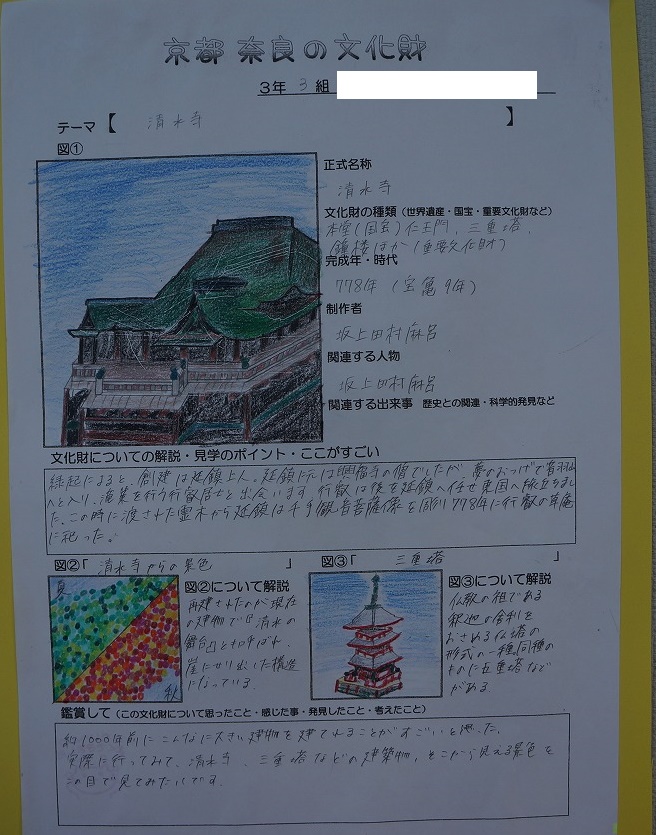 京都 奈良の文化財
3年 3 組
テーマ【 清水寺 】
図①
正式名称
清水寺
文化財の種類（世界遺産・国宝・重要文化財など）
本堂(国宝)仁王門、三重塔、
鐘楼ほか(重要文化財)
完成年・時代
778年 (宝亀9年)
制作者
坂上田村麻呂
関連する人物
坂上田村麻呂
関連する出来事 歴史との関連・科学的発見など
文化財についての解説・見学のポイント・ここがすごい
縁起によると、創建は延鎮上人。延鎮は元は興福寺の僧でしたが、夢のおつげで音羽山
へと入り、漁業を行う行叡居士と出会います。行叡は後を延鎮へ任せ東国へ旅立ちまし
た。この時に渡された霊木から延鎮は千手観音菩薩像を彫り778年に行叡の草庵
に祀った。
図②「 清水寺からの景色 」
夏
秋
図②について解説
再建されたのが現在
の建物で『清水の
舞台』とよばれ
崖にせり出した構造
になっている。
図③「 三重塔 」
図③について解説
仏教の祖である
釈迦の舎利を
おさめる仏塔の
形式の一種。同種の
ものに五重塔など
がある。
鑑賞して（この文化財について思ったこと・感じた事・発見したこと・考えたこと）
約1000年前にこんなに大きい建物を建てれることがすごいと思った。
実際に行ってみて、清水寺、三重塔などの建築物、そこから見える景色を
この目で見てみたいです。